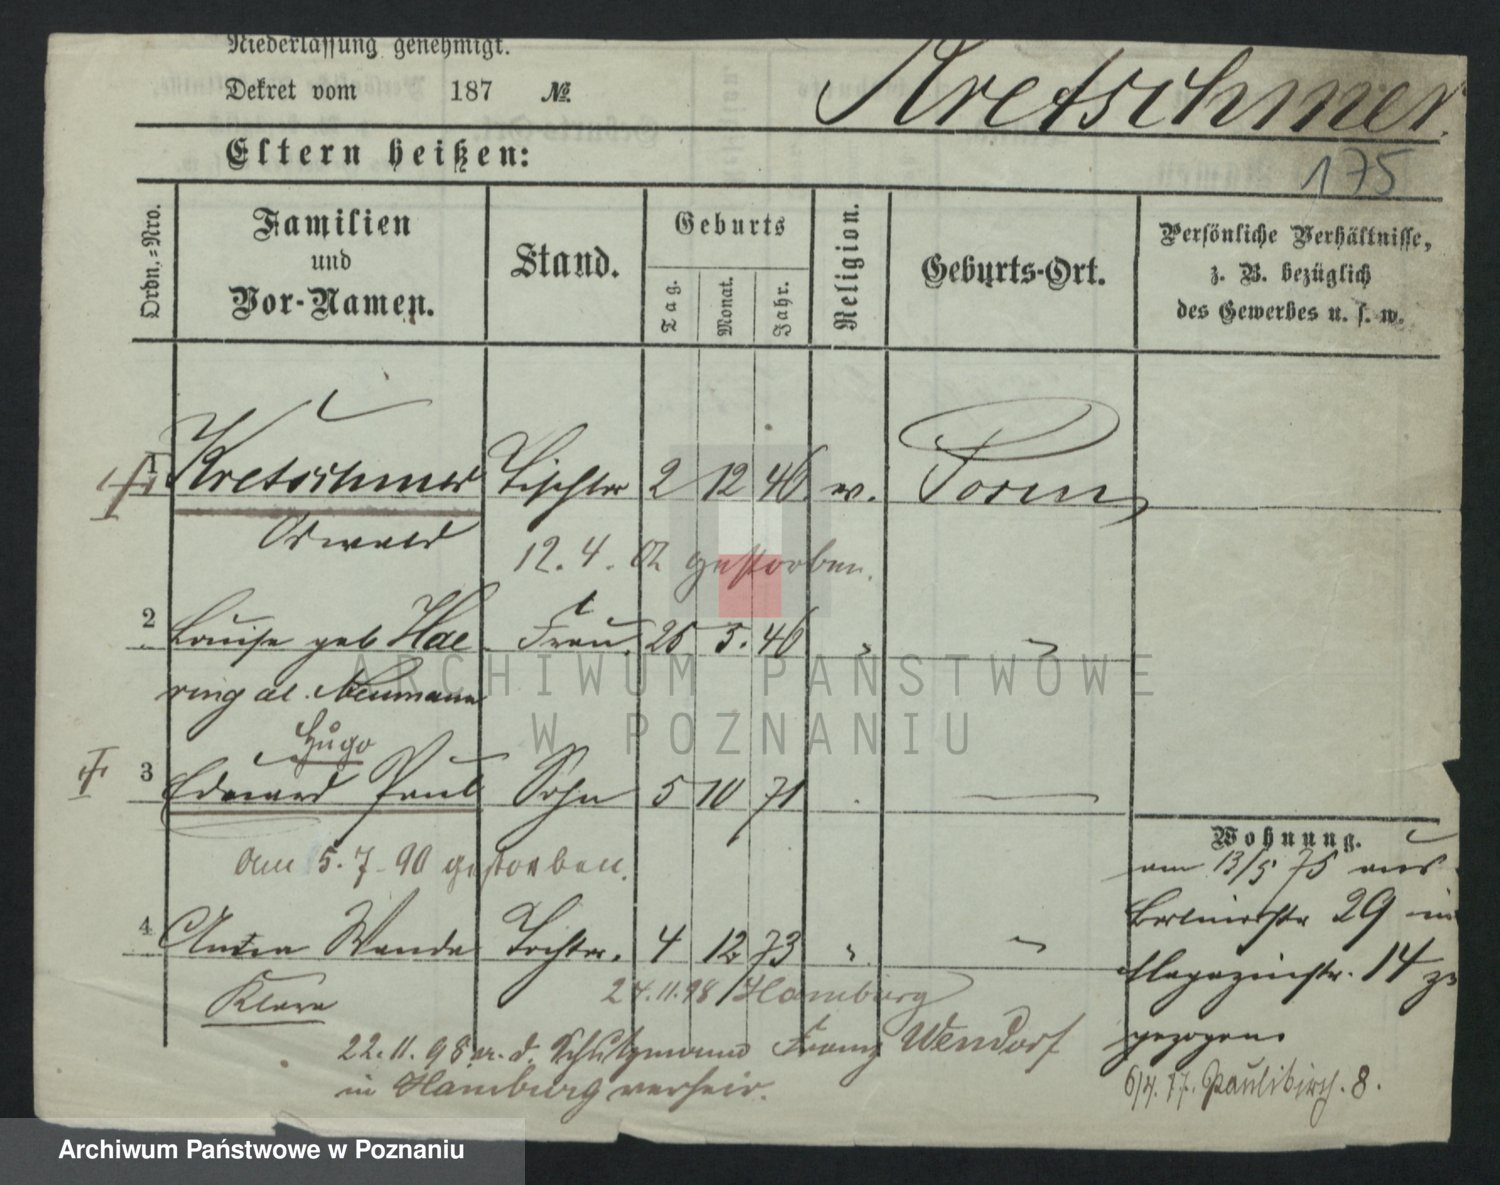 Niederlassung genehmigt.
Dekret vom 187 №
Kretschmer.
175
Eltern heißen:
Ordn.-Nro.
Familien
und
Vor-Namen.
Stand.
Geburts
Tag.
Monat.
Jahr.
Religion.
Geburts-Ort.
Persönliche Verhältnisse,
z. B. bezüglich
des Gewerbes u. s. w.
1 Kretschmer Tischler 2 12 46 ev. Posen
Oswald
12. 4. gestorben.
2 Louise geb Hae Frau. 25 5. 46 "
ring al. Neumann
Hugo
3 Eduard Paul Sohn 5 10 71
am 5. 7. 90 gestorben.
4 Wanda Tochter. 4 12 73 "
Klara
24.11.98 Hamburg
22.11.98 d. Schutzmann Franz Wendorf
in Hamburg verheir.
Wohnung.
am 13/5 75 aus
Berlinerstr 29 in
Magazinstr. 14 
gezogen.
6/4. 77. Paulikirch. 8.
ARCHIWUM PAŃSTWOWE
W POZNANIU
Archiwum Państwowe w Poznaniu